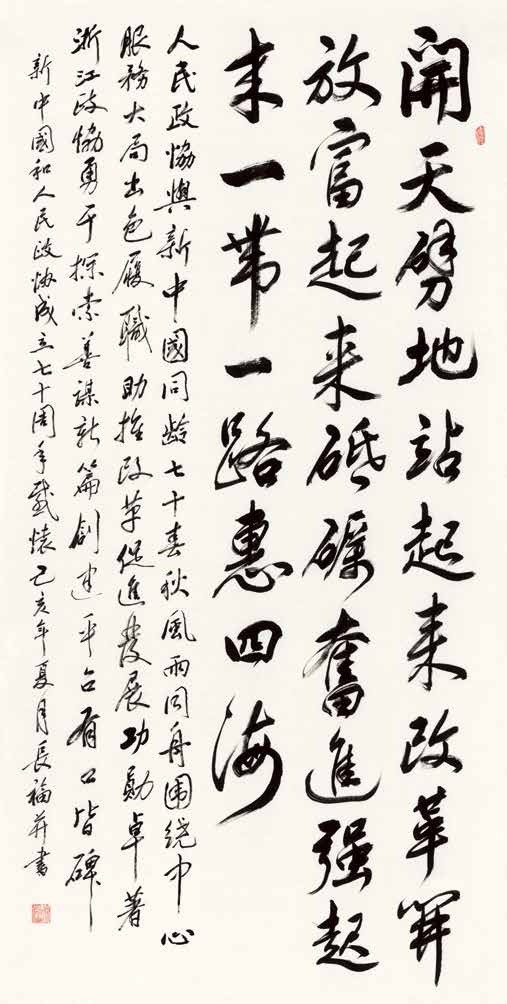 開天劈地站起来改革開
放富起来砥礪奮進强起
来一帶一路惠四海
人民政協與新中國同龄七十春秋風雨同舟围绕中心
服務大局出色履職助推改革促進發展功勛卓著
浙江政協勇于探索善謀新篇創建平台有口皆碑
新中國和人民政協成立七十周年感懷己亥年夏月長福并書